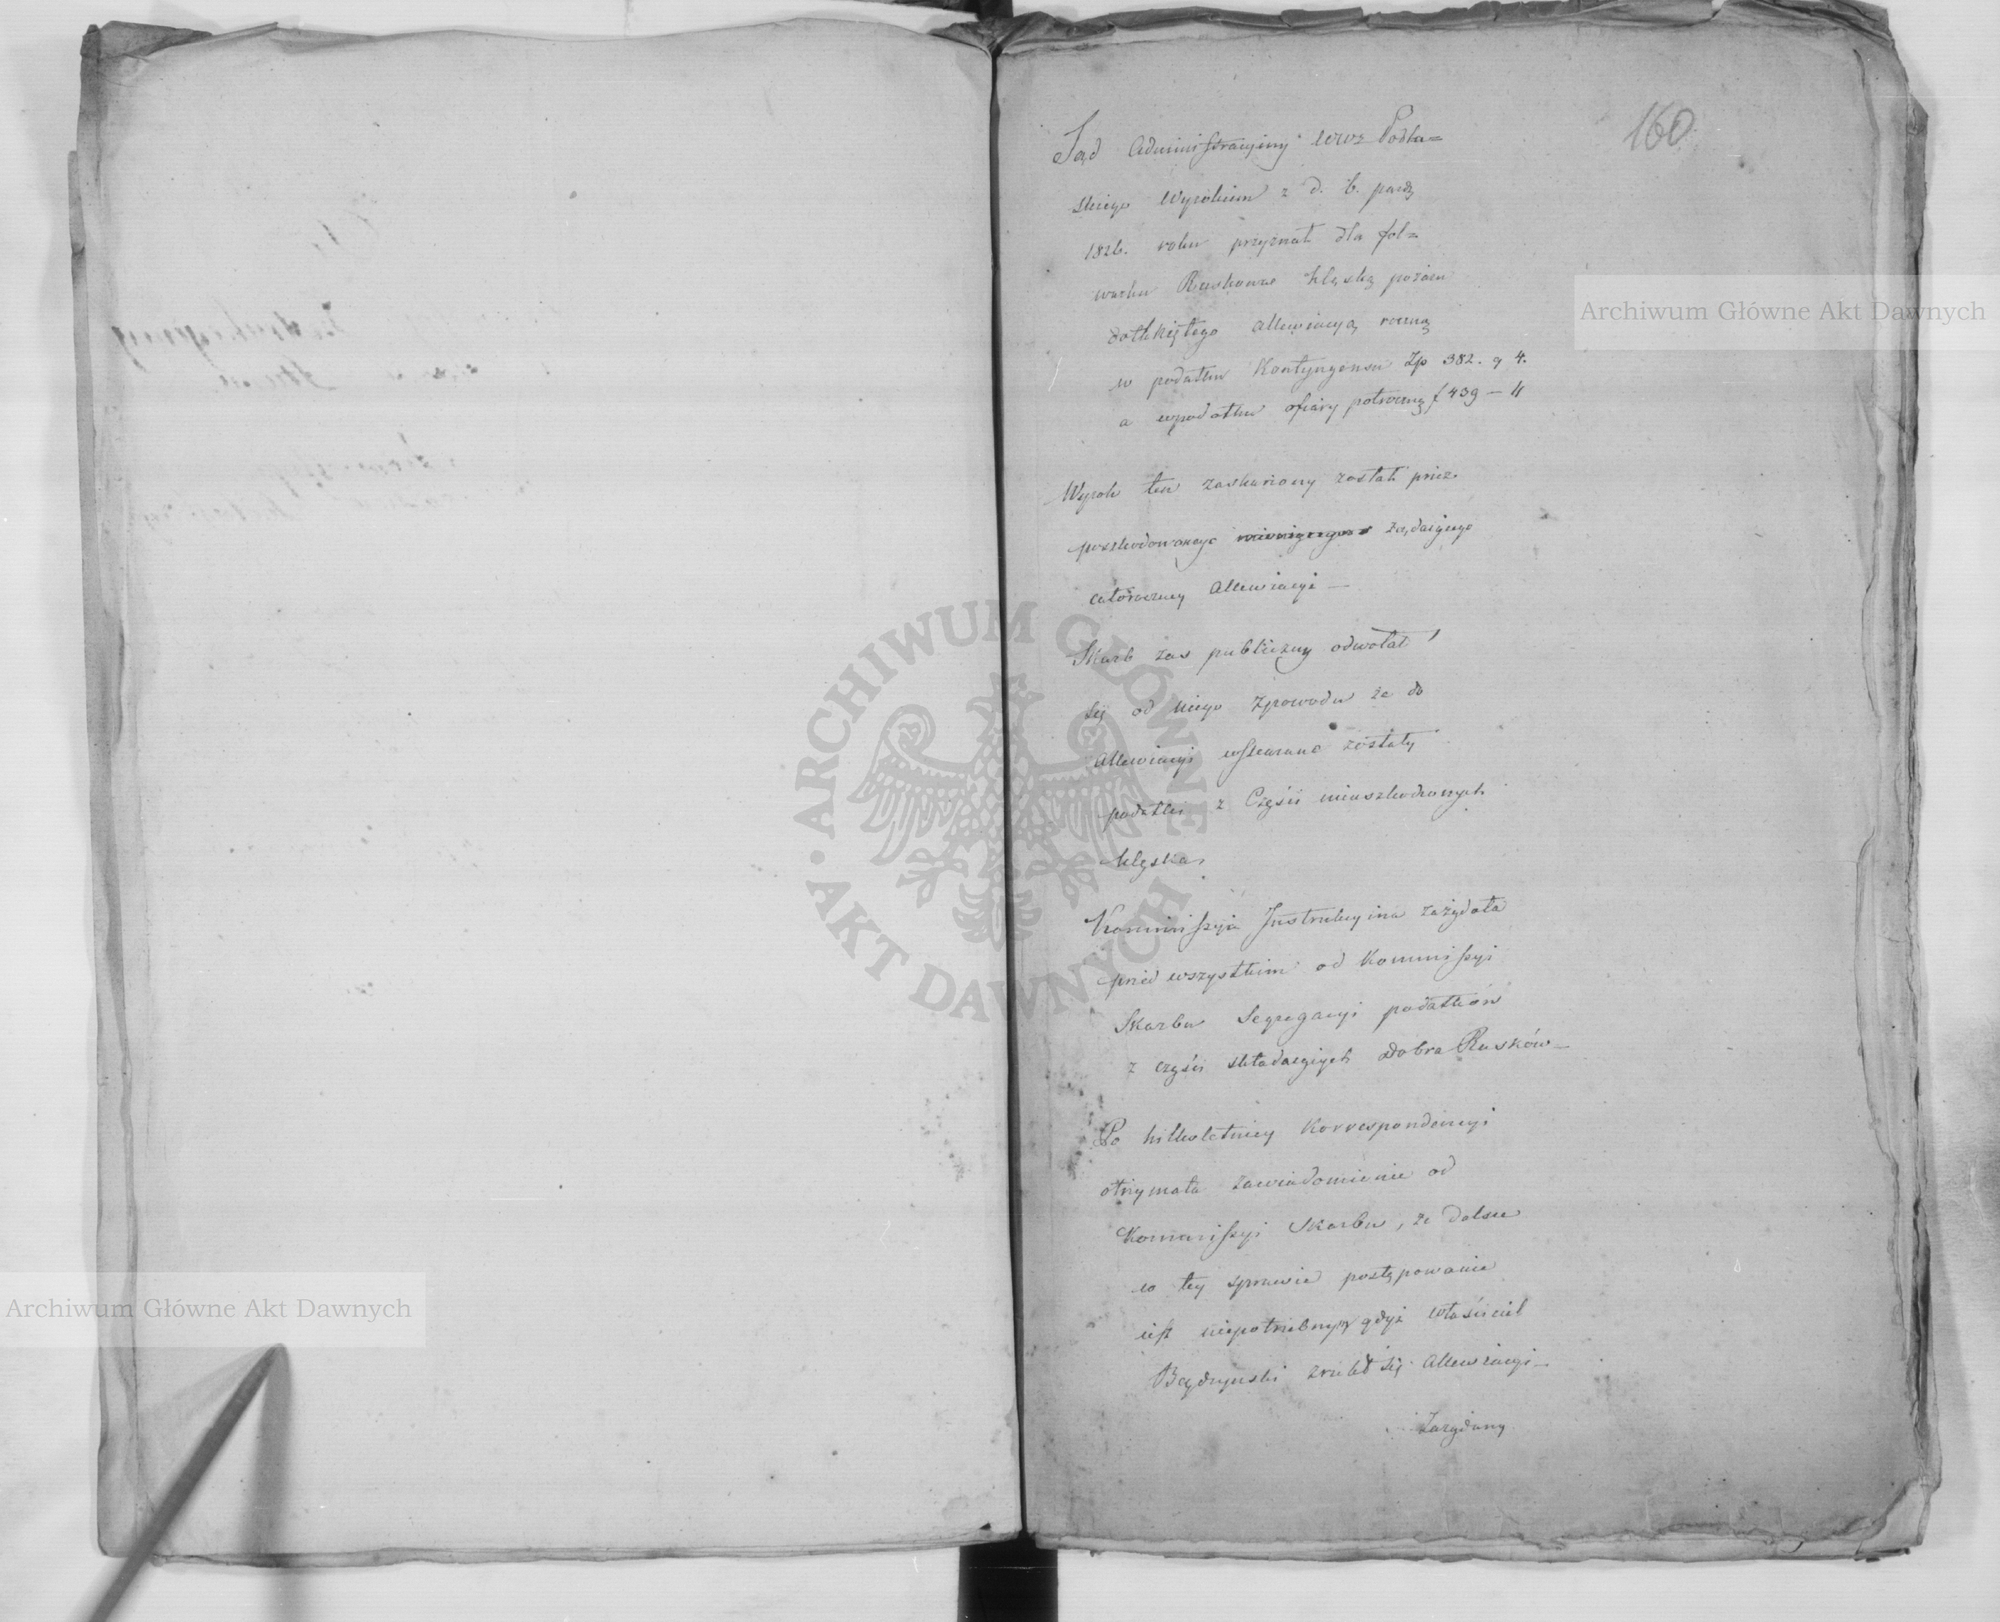 160
Sąd Administracyiny Wwz Podla=
skiego Wyrokiem z d. 6. paźdz
1826. roku przyznał dla fol=
warku Ruskowa klęską pożaru
dotkniętego allewiacyą roczną
w podatku Kontyngensu Zp 382. g 4.
a w podatku ofiary półroczną f 439 – 11
Wyrok ten zaskarżony został przez
poszkodowanego żądaiącego
całoroczney Allewiacyi —
Skarb zas publiczny odwołał
się od niego z powodu że do
Allewiacyi wskazane zostały
podatki z Części nieuszkodzonych
klęską,
Kommissyia Instrukcyina zażądała
przed wszystkim od Kommissyi
Skarbu Segregacyi podatków
z części składaiących Dobra Rusków —
Po kilkoletniey Korrespondencyi
otrzymała zawiadomienie od
Kommissyi Skarbu, że dalsze
w tey sprawie postępowanie
iest niepotrzebnym gdyż właściciel
zrzekł się Allewiacyi —
Zarządany
Archiwum Główne Akt Dawnych
Archiwum Główne Akt Dawnych
ARCHIWUM GŁÓWNE · AKT DAWNYCH ·